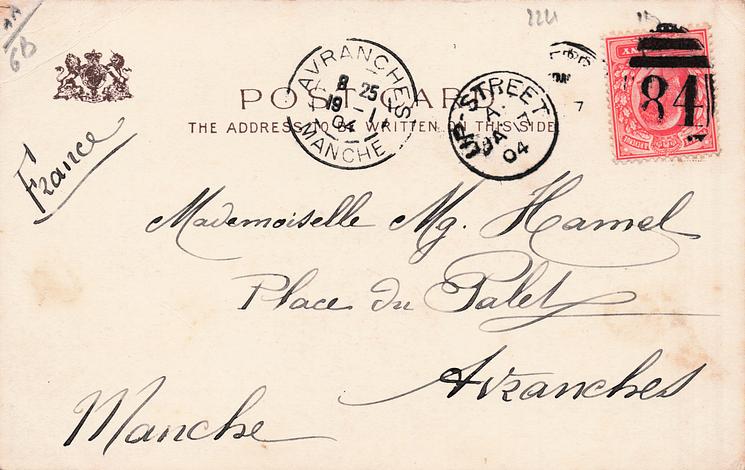 6B
POST CARD
THE ADDRESS TO BE WRITTEN ON THIS SIDE
AVRANCHES
8 25
19 - 1
04
MANCHE
STREET
JA
04
7
84
France
Mademoiselle Mg. Hamel
Place du Palet
Avranches
Manche